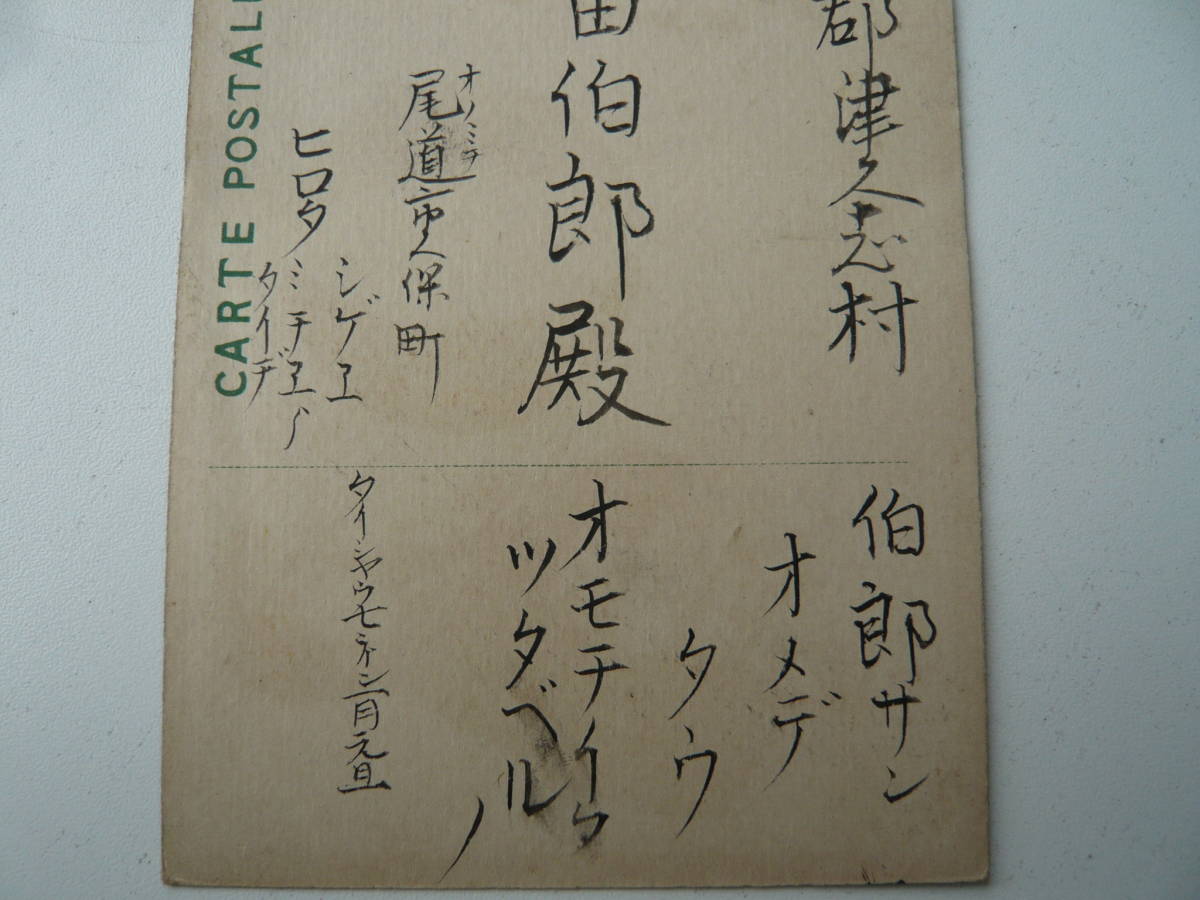 郡津久志村
田伯郎殿
オノミチ
尾道市久保町
シゲヱ
ヒロタミチヱヨリ
タイヂ
CARTE POSTAL
伯郎サン
オメデ
タウ
オモチイク
ツタベル
ノ
タイシヤウ七ネン一月元旦